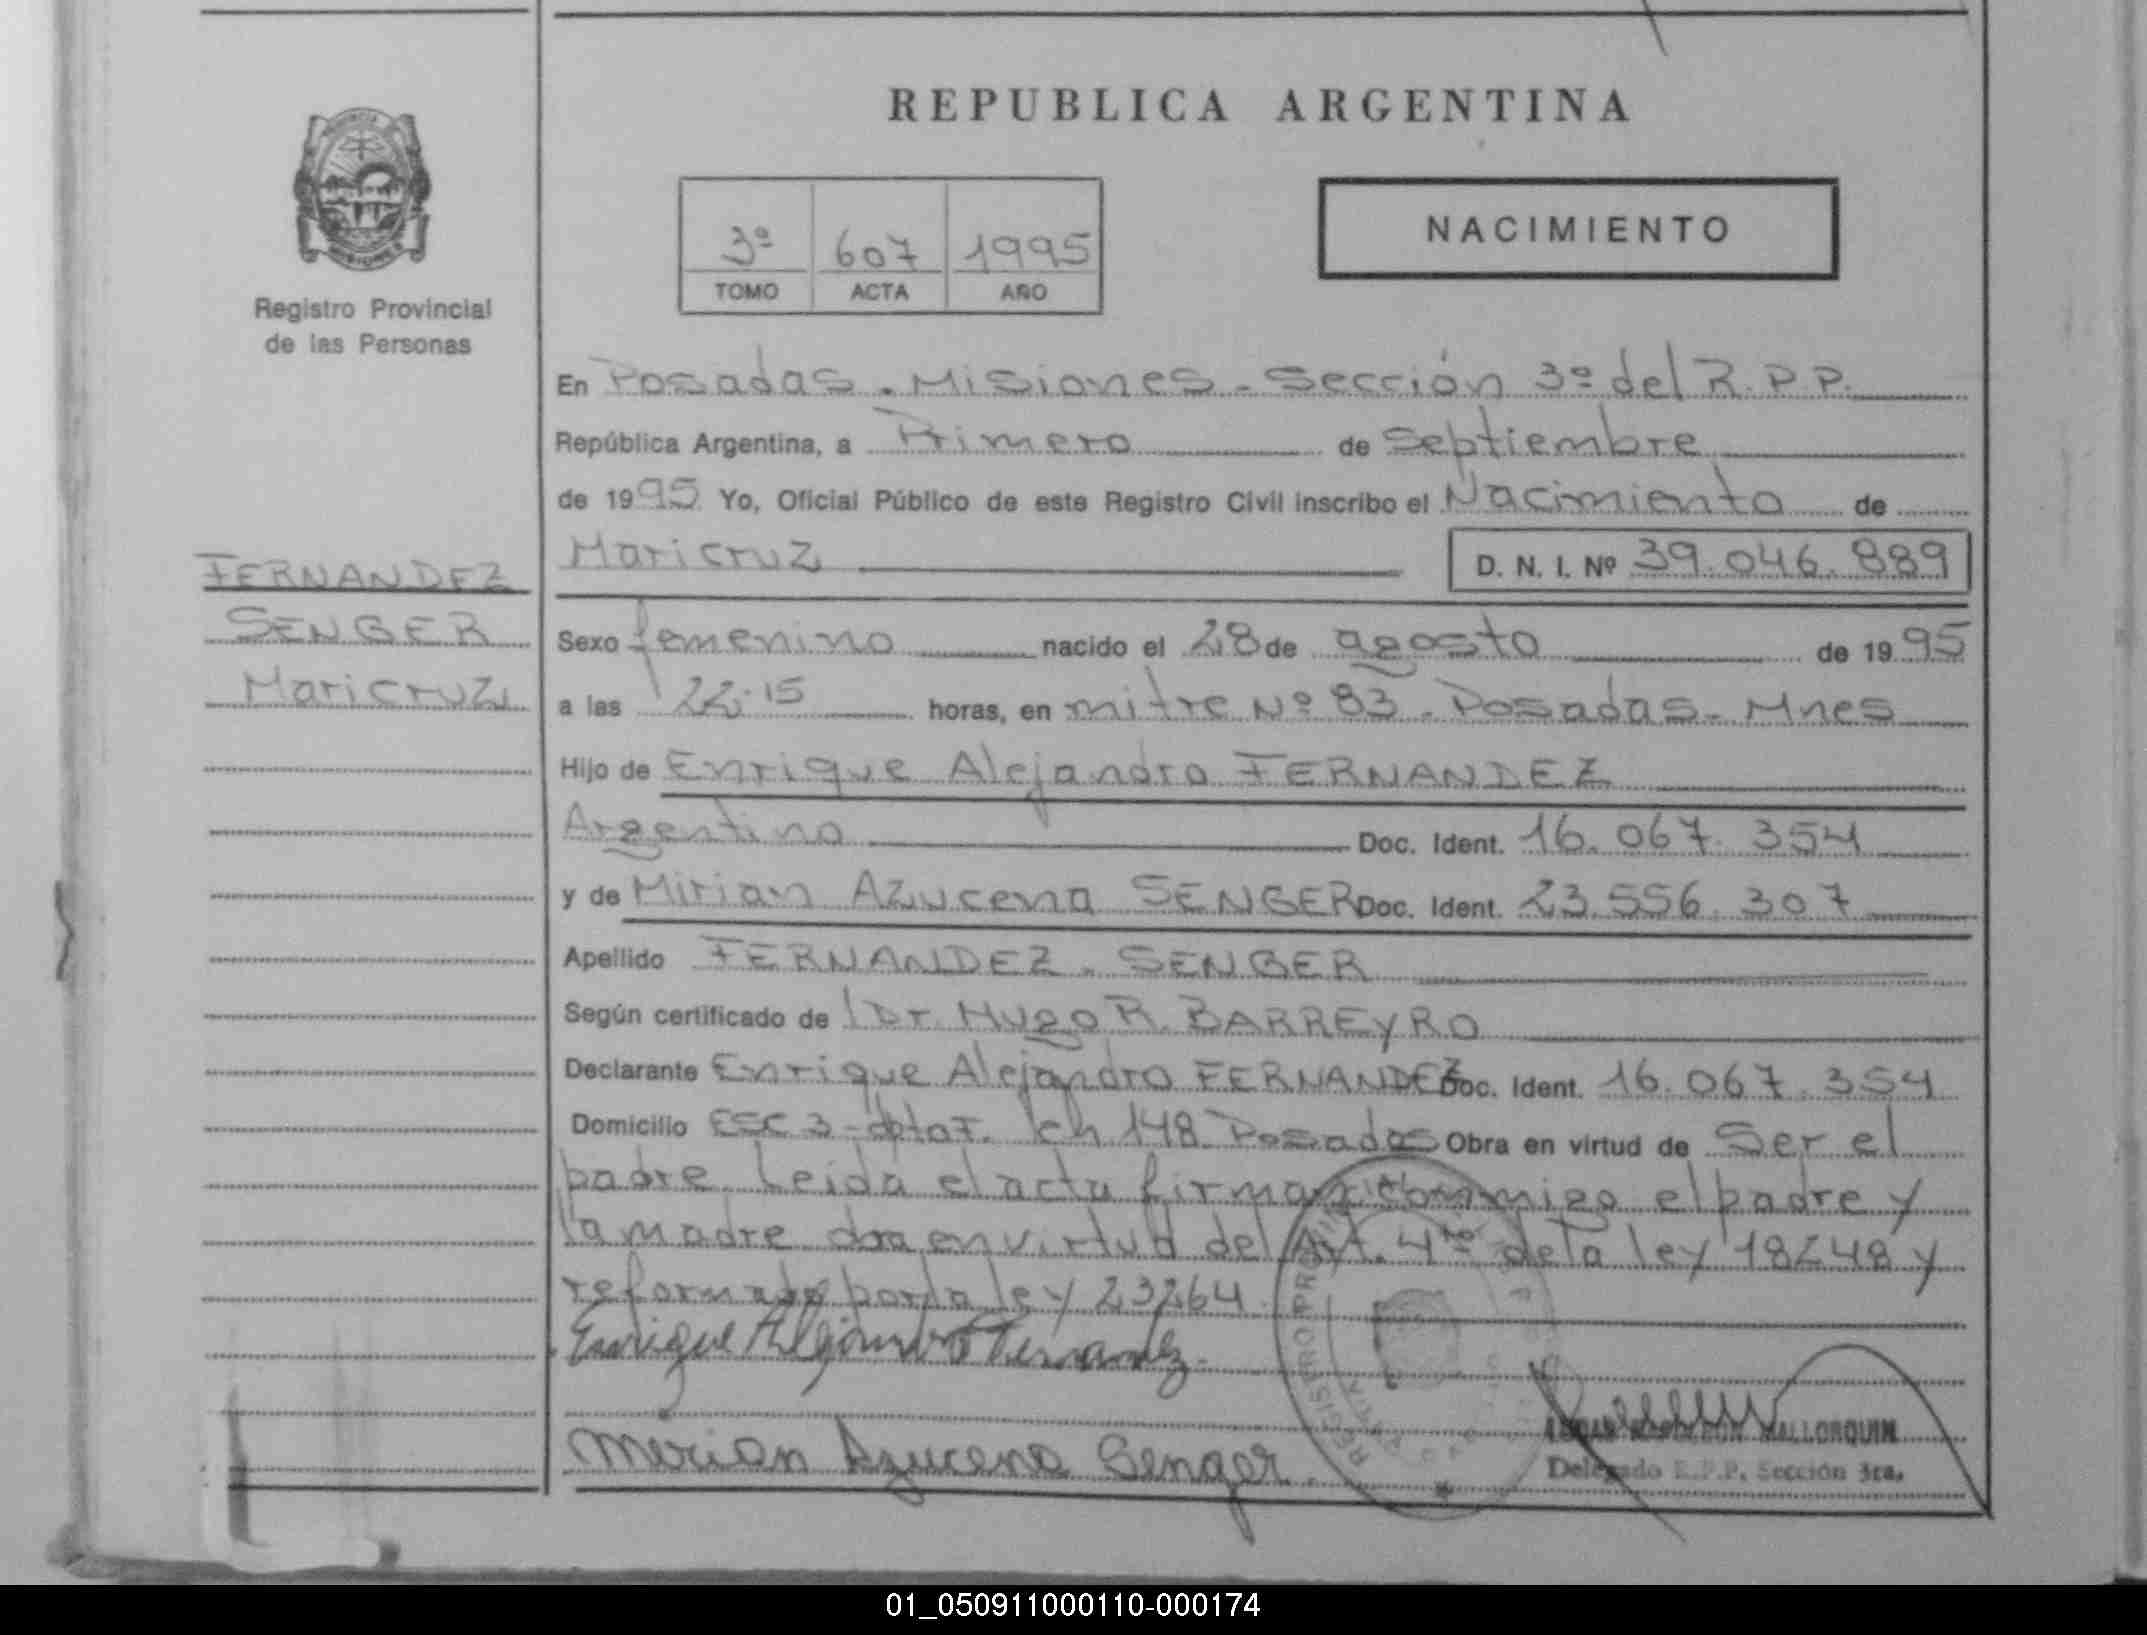 REPUBLICA ARGENTINA
NACIMIENTO
3º 607 1995
TOMO ACTA AÑO
Registro Provincial
de las Personas
En Posadas - Misiones - Sección 3º del R.P.P.
República Argentina, a Primero de Septiembre
de 1995 Yo, Oficial Público de este Registro Civil inscribo el Nacimiento de
Maricruz D. N. I. Nº 39.046.889
FERNANDEZ
SENGER
Maricruz
Sexo femenino nacido el 28 de agosto de 1995
a las 22:15 horas, en mitre Nº 83 - Posadas - Mnes
Hijo de Enrique Alejandro FERNANDEZ
Argentino Doc. Ident. 16.067.354
y de Mirian Azucena SENGER Doc. Ident. 23.556.307
Apellido FERNANDEZ - SENGER
Según certificado de Dr. Hugo R. BARREYRO
Declarante Enrique Alejandro FERNANDEZ Doc. Ident. 16.067.354
Domicilio ESC 3 - ch 148 Posadas Obra en virtud de Ser el
padre. Leida el acta firman conmigo el padre y
la madre en virtud del Art. 4to de la ley 18248 y
reformado por la ley 23264
Enrique Alejandro Fernandez.
Mirian Azucena Senger.
REGISTRO PROVINCIAL
MALLORQUIN
Delegado R.P.P. Sección 3ra.
01_050911000110-000174